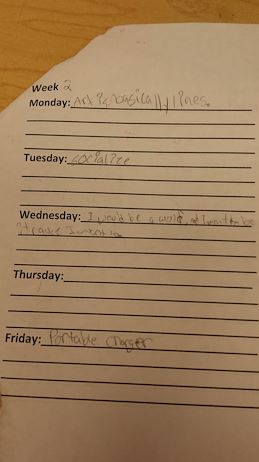 Week 2
Monday: Art is basically lines.
Tuesday: socialize
Wednesday: I would be a wolf, I want to be
Thursday:
Friday: Portable charger